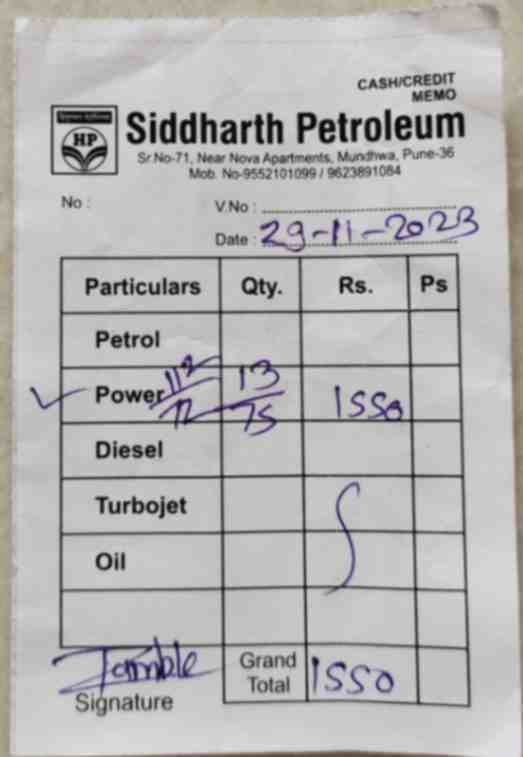 CASH/CREDIT
MEMO
HP
Siddharth Petroleum
Sr.No-71, Near Nova Apartments, Mundhwa, Pune-36
Mob. No-9552101099 / 9623891084
No :
V.No :
Date : 29-11-2023
Particulars Qty. Rs. Ps
Petrol
Power 112/72 13/75 1550
Diesel
Turbojet
Oil
Grand Total 1550
Signature